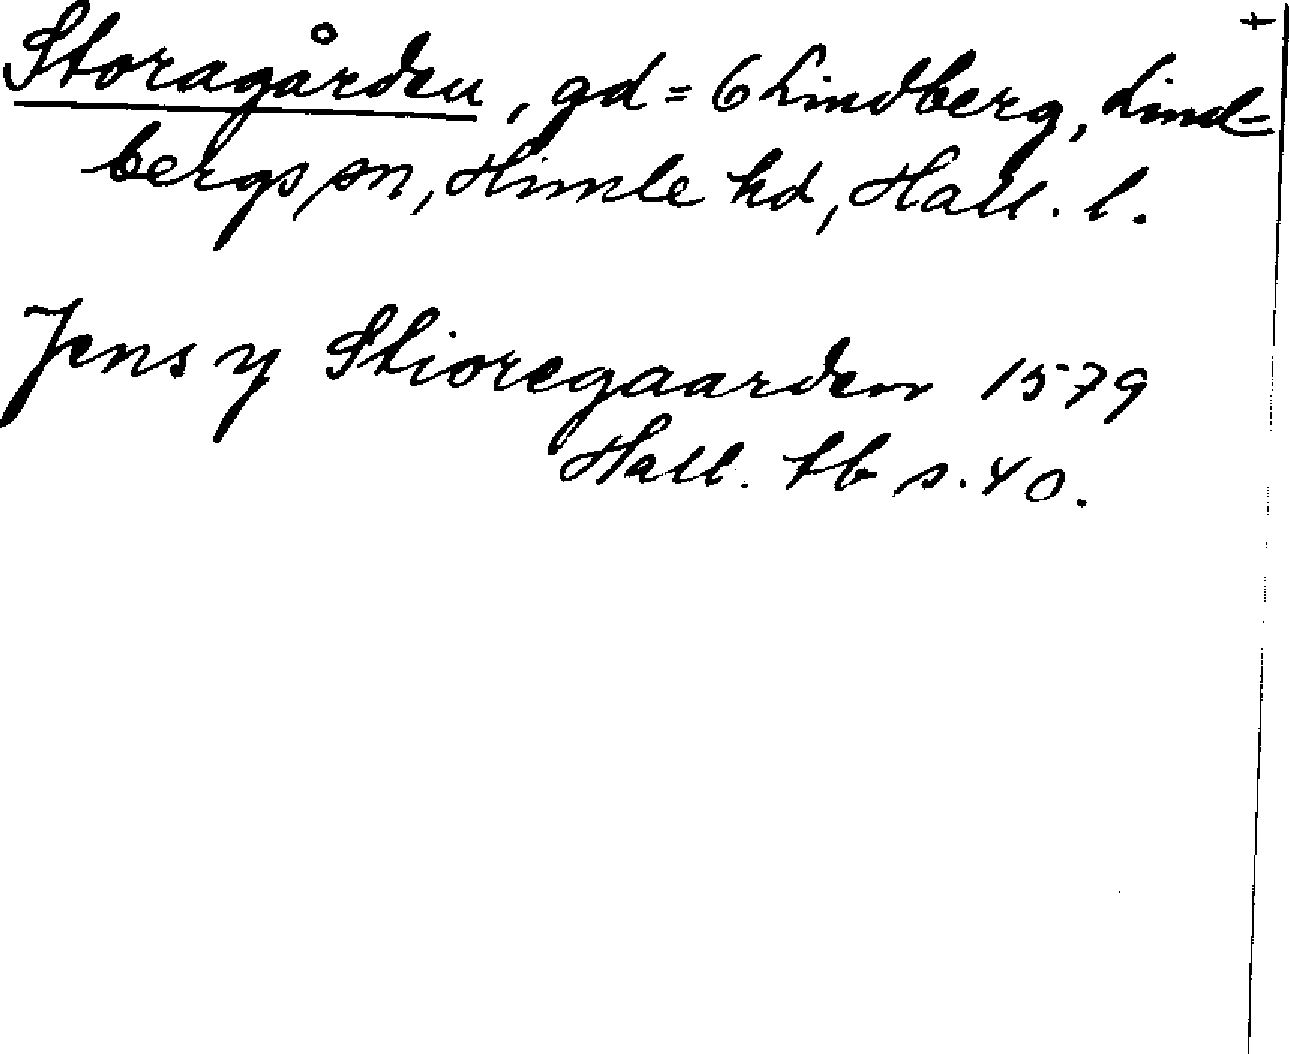 Storagården, gd = 6 Lindberg, Lind=
bergs sn, Himle hd, Hall. l.
Jens y Stioregaarden 1579
Hall. tb s. 40.